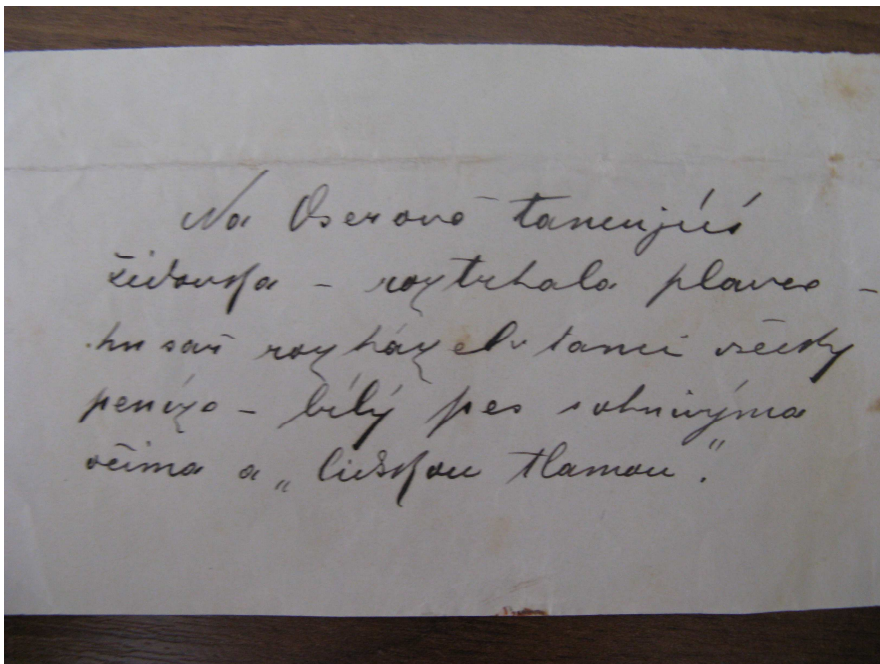 Na Oserově tancujúcí
židovka - roztrhala plavco -
husař rozházel v tanci všecky
peníze - bílý pes s ohnivýma
očima a „lidskou tlamou".